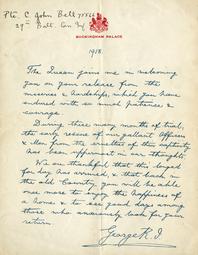 Pte. C. John Bell
29th Batt. Can. Inf.
BUCKINGHAM PALACE
1918.
The Queen joins me in welcoming
you on your release from the
miseries & hardships, which you have
endured with so much patience &
courage.
During these many months of trial,
the early rescue of our gallant Officers
& Men from the cruelties of their captivity
has been uppermost in our thoughts.
We are thankful that this longed
for day has arrived, & that back in
the old Country you will be able
once more to enjoy the happiness of
a home & to see good days among
those who anxiously look for your
return.
George R.I.